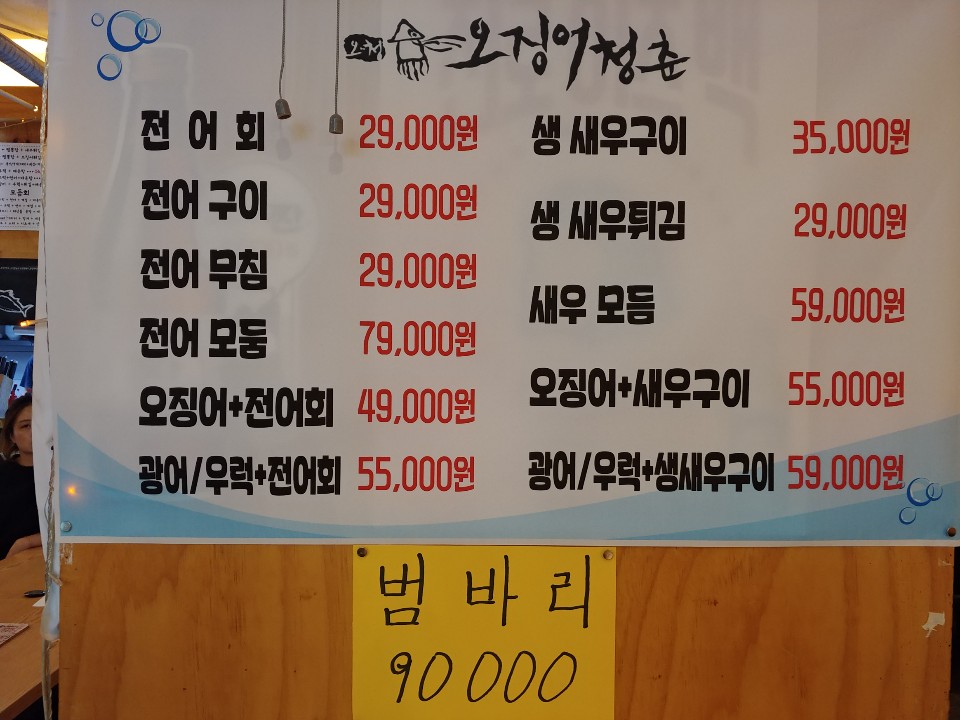 오징어청춘
전 어 회 29,000원
전어 구이 29,000원
전어 무침 29,000원
전어 모둠 79,000원
오징어+전어회 49,000원
광어/우럭+전어회 55,000원
생 새우구이 35,000원
생 새우튀김 29,000원
새우 모듬 59,000원
오징어+새우구이 55,000원
광어/우럭+생새우구이 59,000원
범 바 리
90000
모듬회